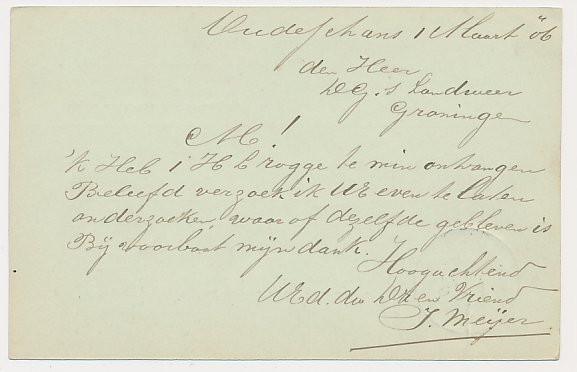 Oudeschans 1 Maart '06
den Heer
D G. S Landweer
Groningen
M !
'k Heb 1 H L rogge te min ontvangen
Beleefd verzoek ik UE even te laten
onderzoeken waar of dezelfde gebleven is
Bij voorbaat mijn dank.
Hoogachtend
UEd. dw Dr en Vriend
J. Meijer.